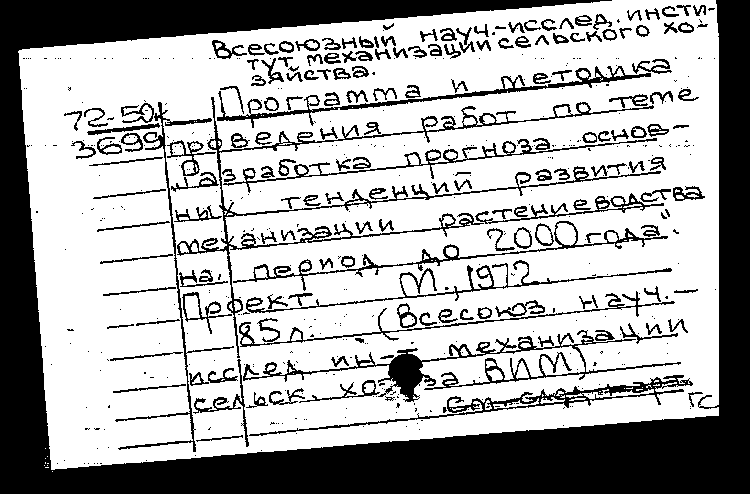 Всесоюзный науч.-исслед. инсти-
тут механизации сельского хо-
зяйства.
72-50к Программа и методика
3699 проведения работ по теме
„Разработка прогноза основ-
ных тенденций развития
механизации растениеводства
на период до 2000 года".
Проект. М., 1972.
85 л. (Всесоюз. науч.-
исслед ин-т механизации
сельск. хо-ва ВИМ).
см. след. карт.
ГС